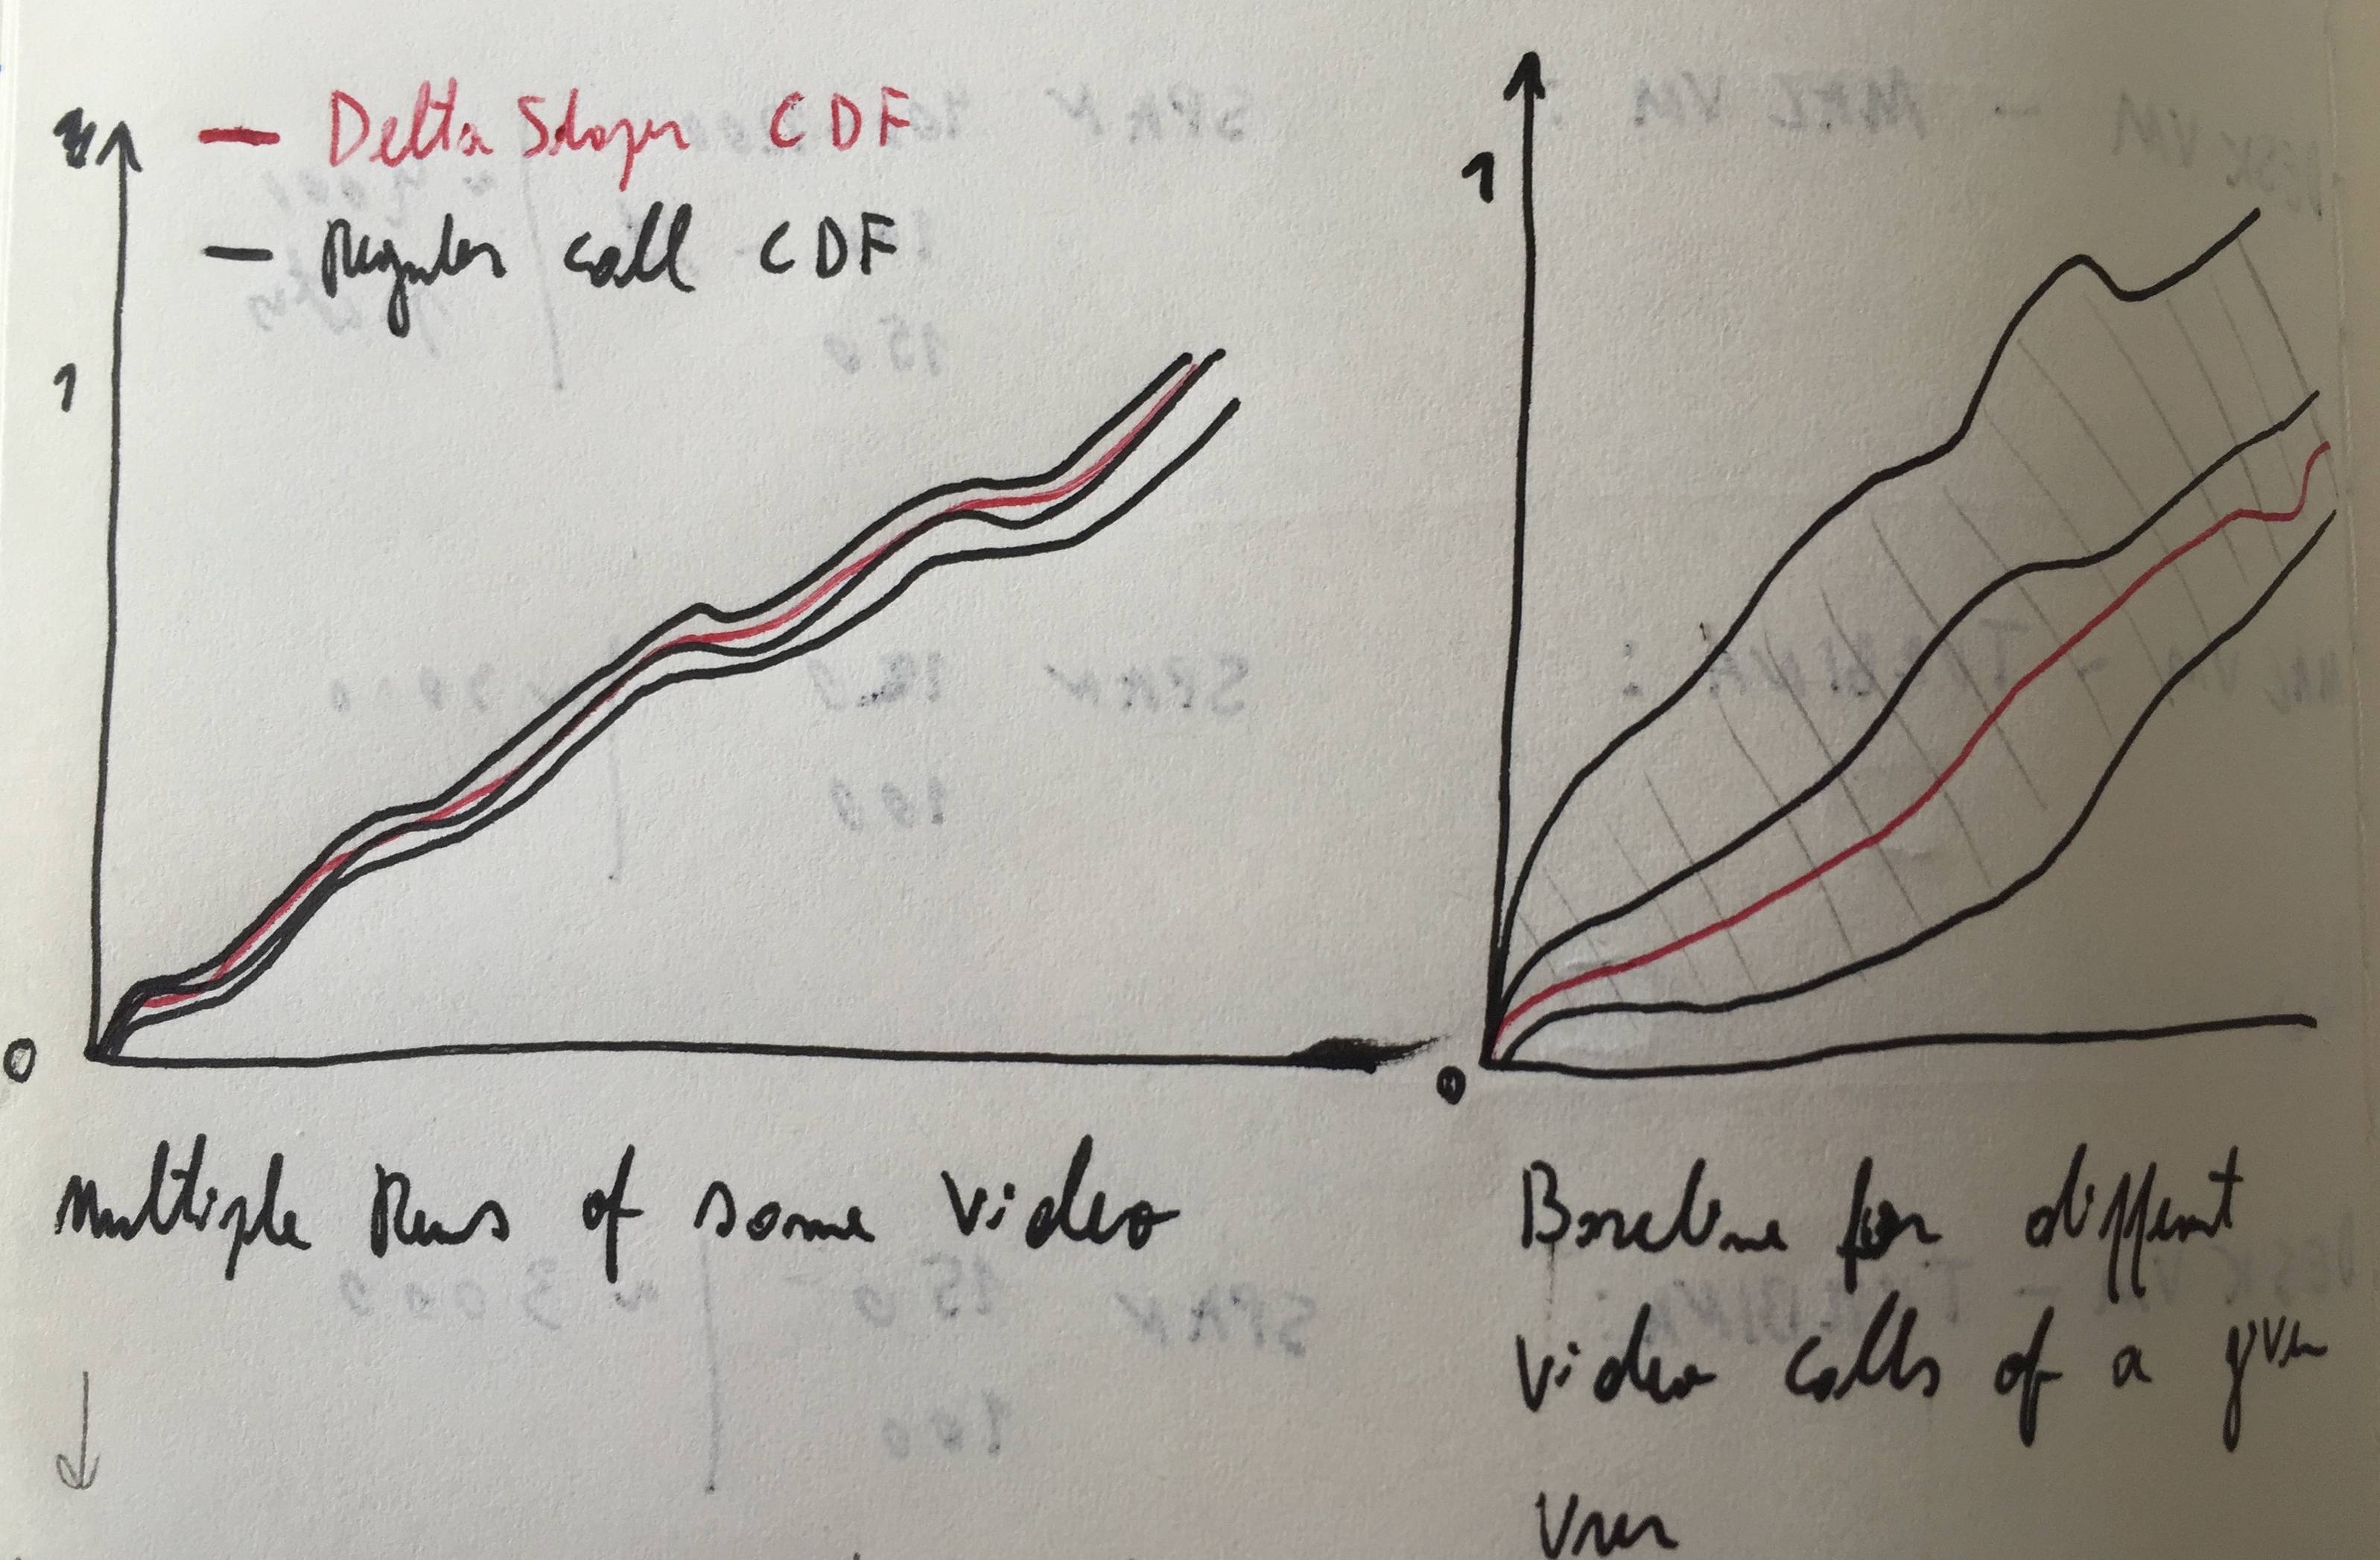 — Delta Shaper CDF
— Regular call CDF
1
0
Multiple Runs of same video
1
0
Baseline for different
video calls of a given
User